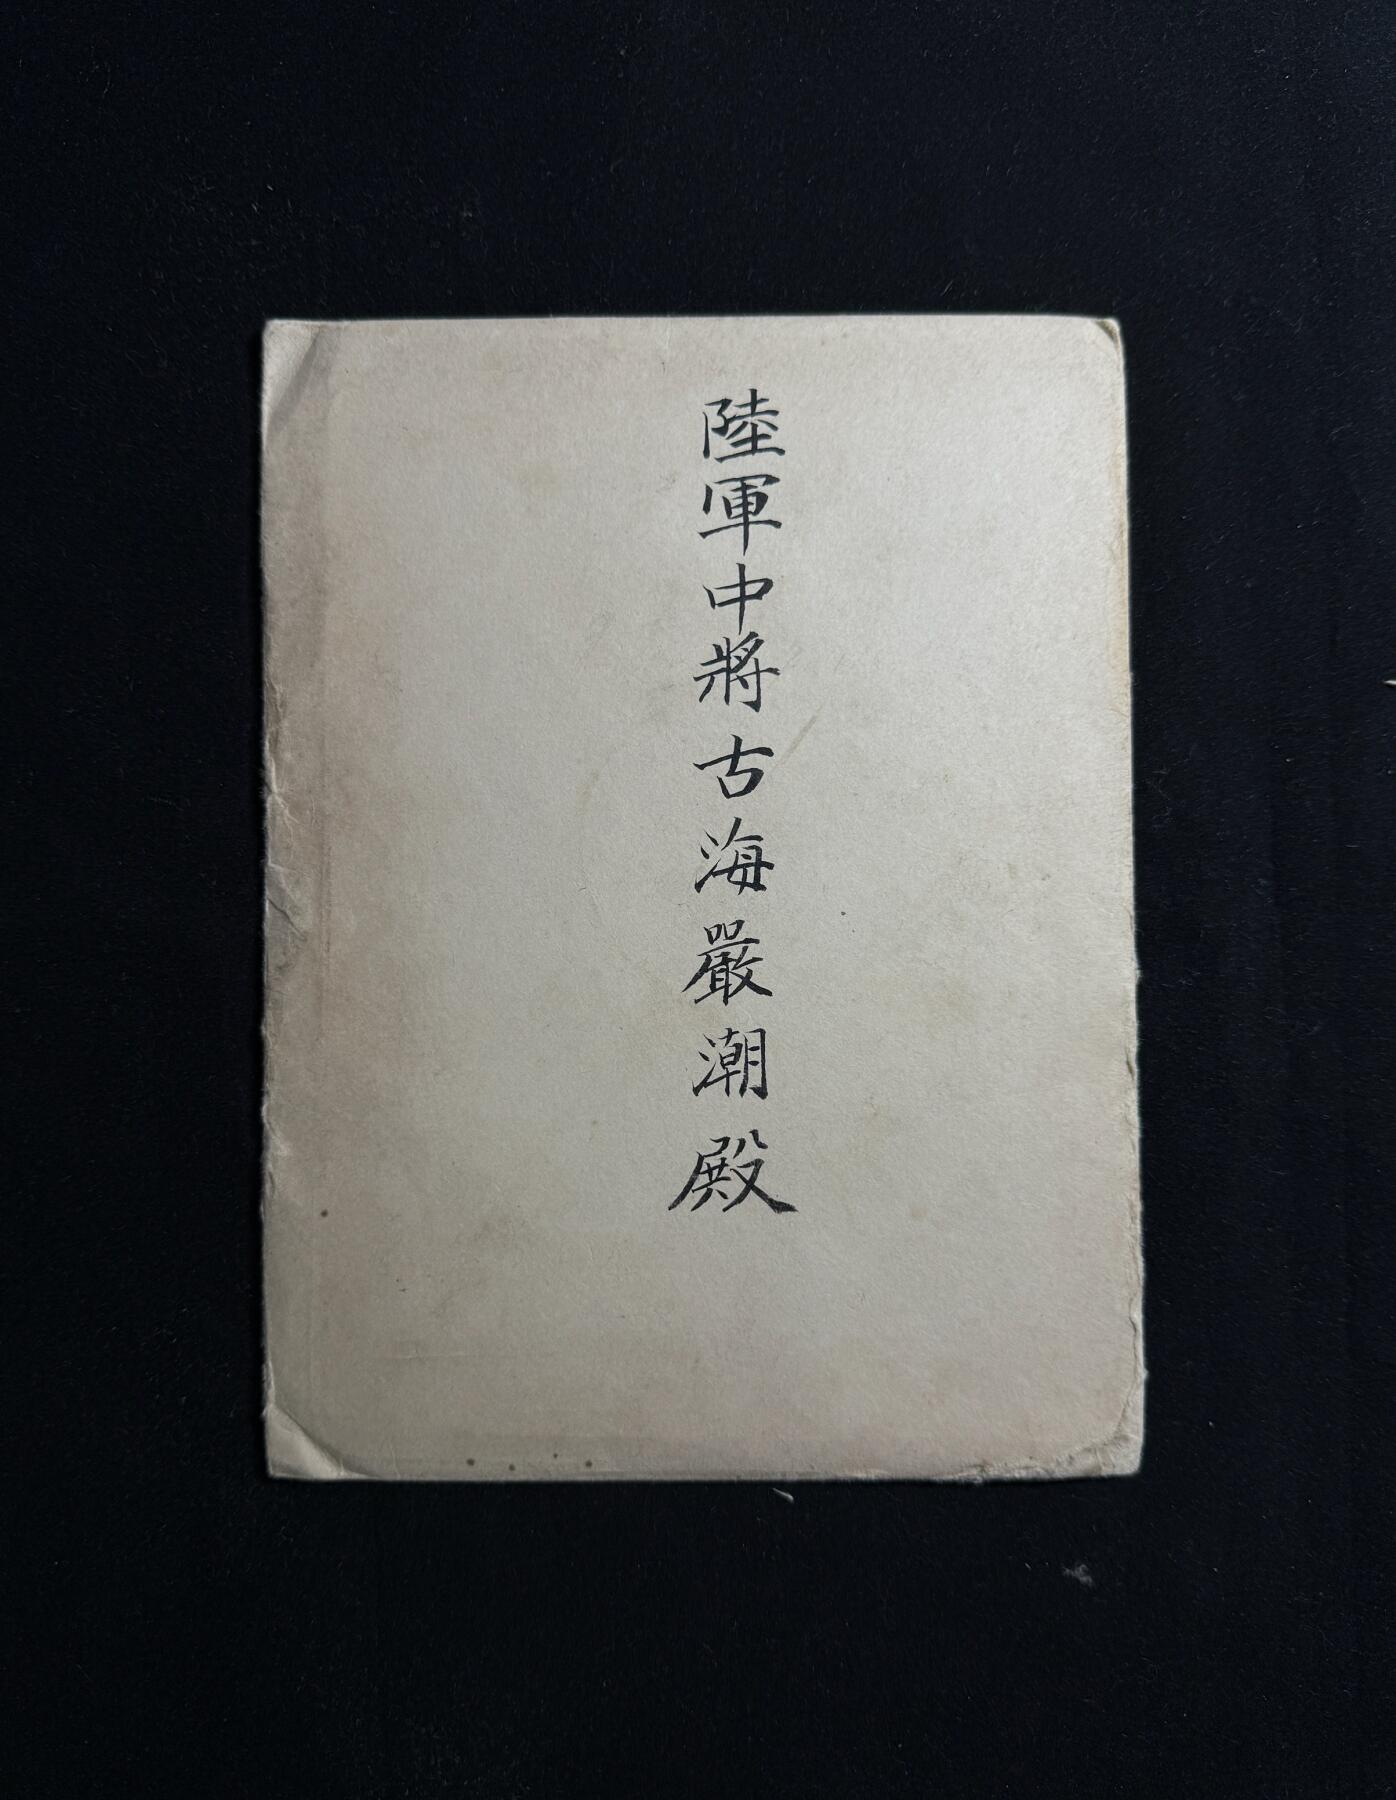 陸軍中將古海嚴潮殿